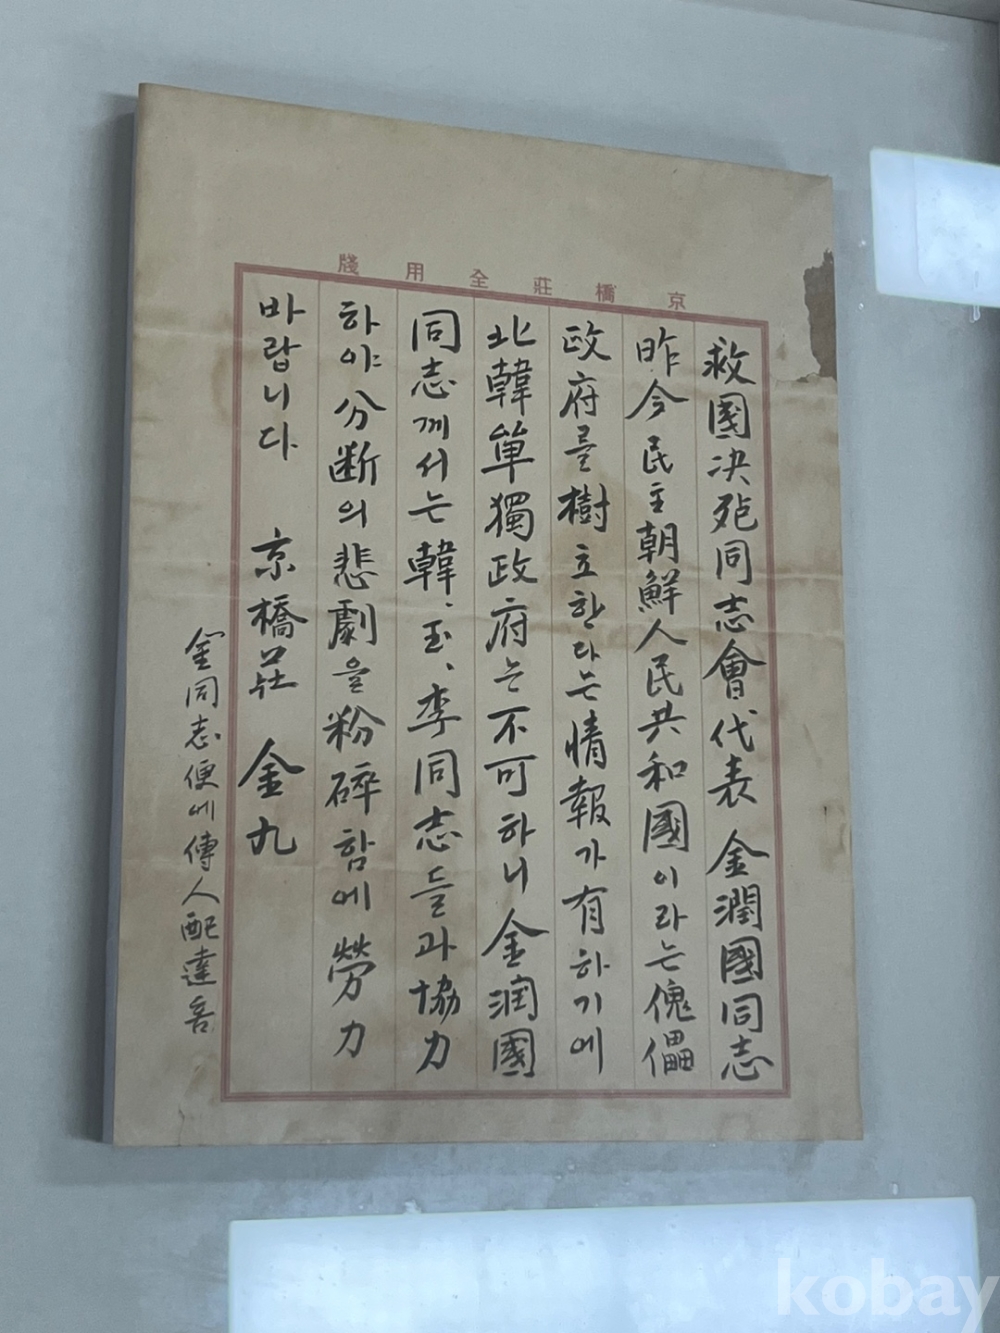 京橋莊全用牋
救國決死同志會代表 金潤國同志
昨今民主朝鮮人民共和國이라는傀儡
政府를樹立한다는情報가有하기에
北韓単獨政府는不可하니金润國
同志께서는韓、玉、李同志들과協力
하야分断의悲劇을粉碎함에勞力
바랍니다 京橋莊 金九
金同志便에傳人配達
kobay